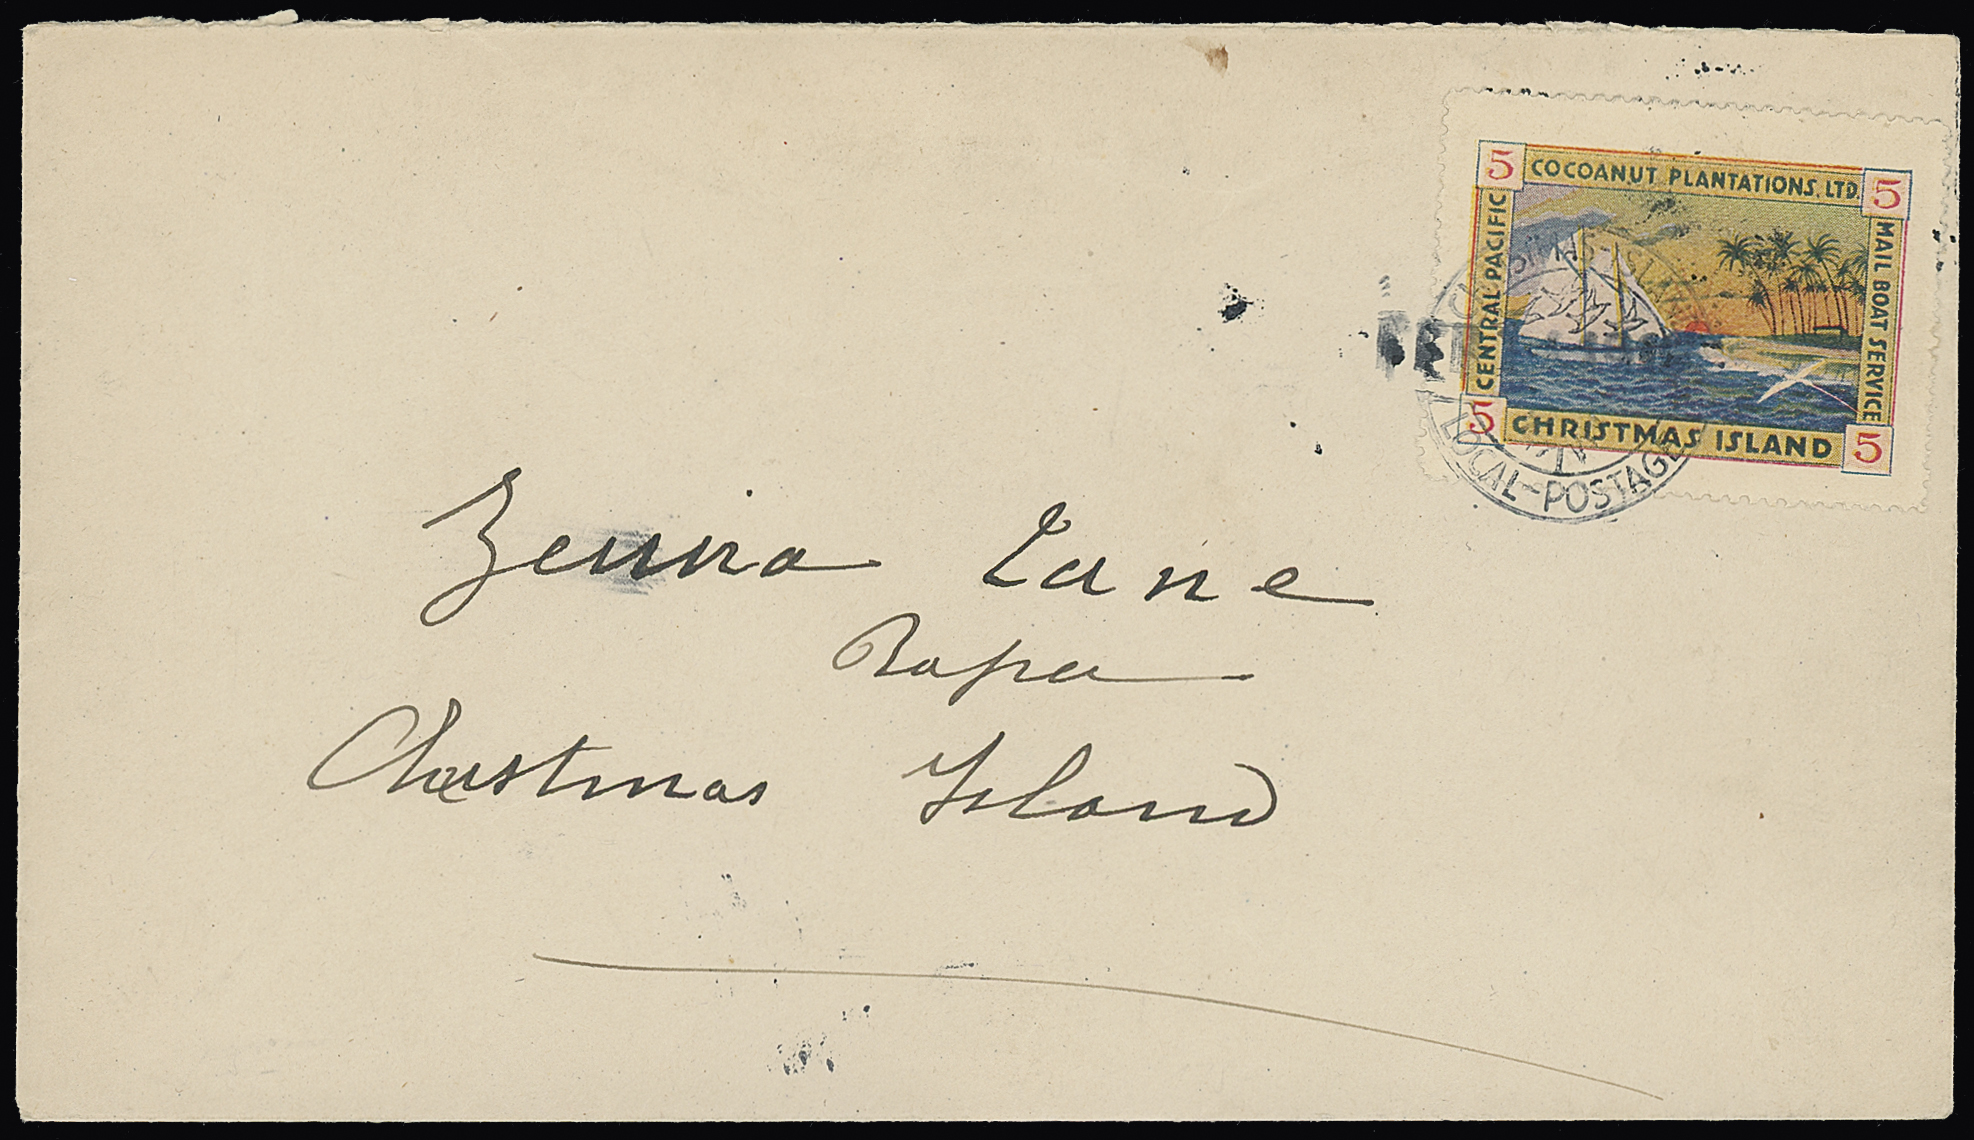 5 COCOANUT PLANTATIONS, LTD. 5
CENTRAL PACIFIC
MAIL BOAT SERVICE
5 CHRISTMAS ISLAND 5
CHRISTMAS-ISLAND
LOCAL-POSTAGE
Lane
Rapa
Christmas Island